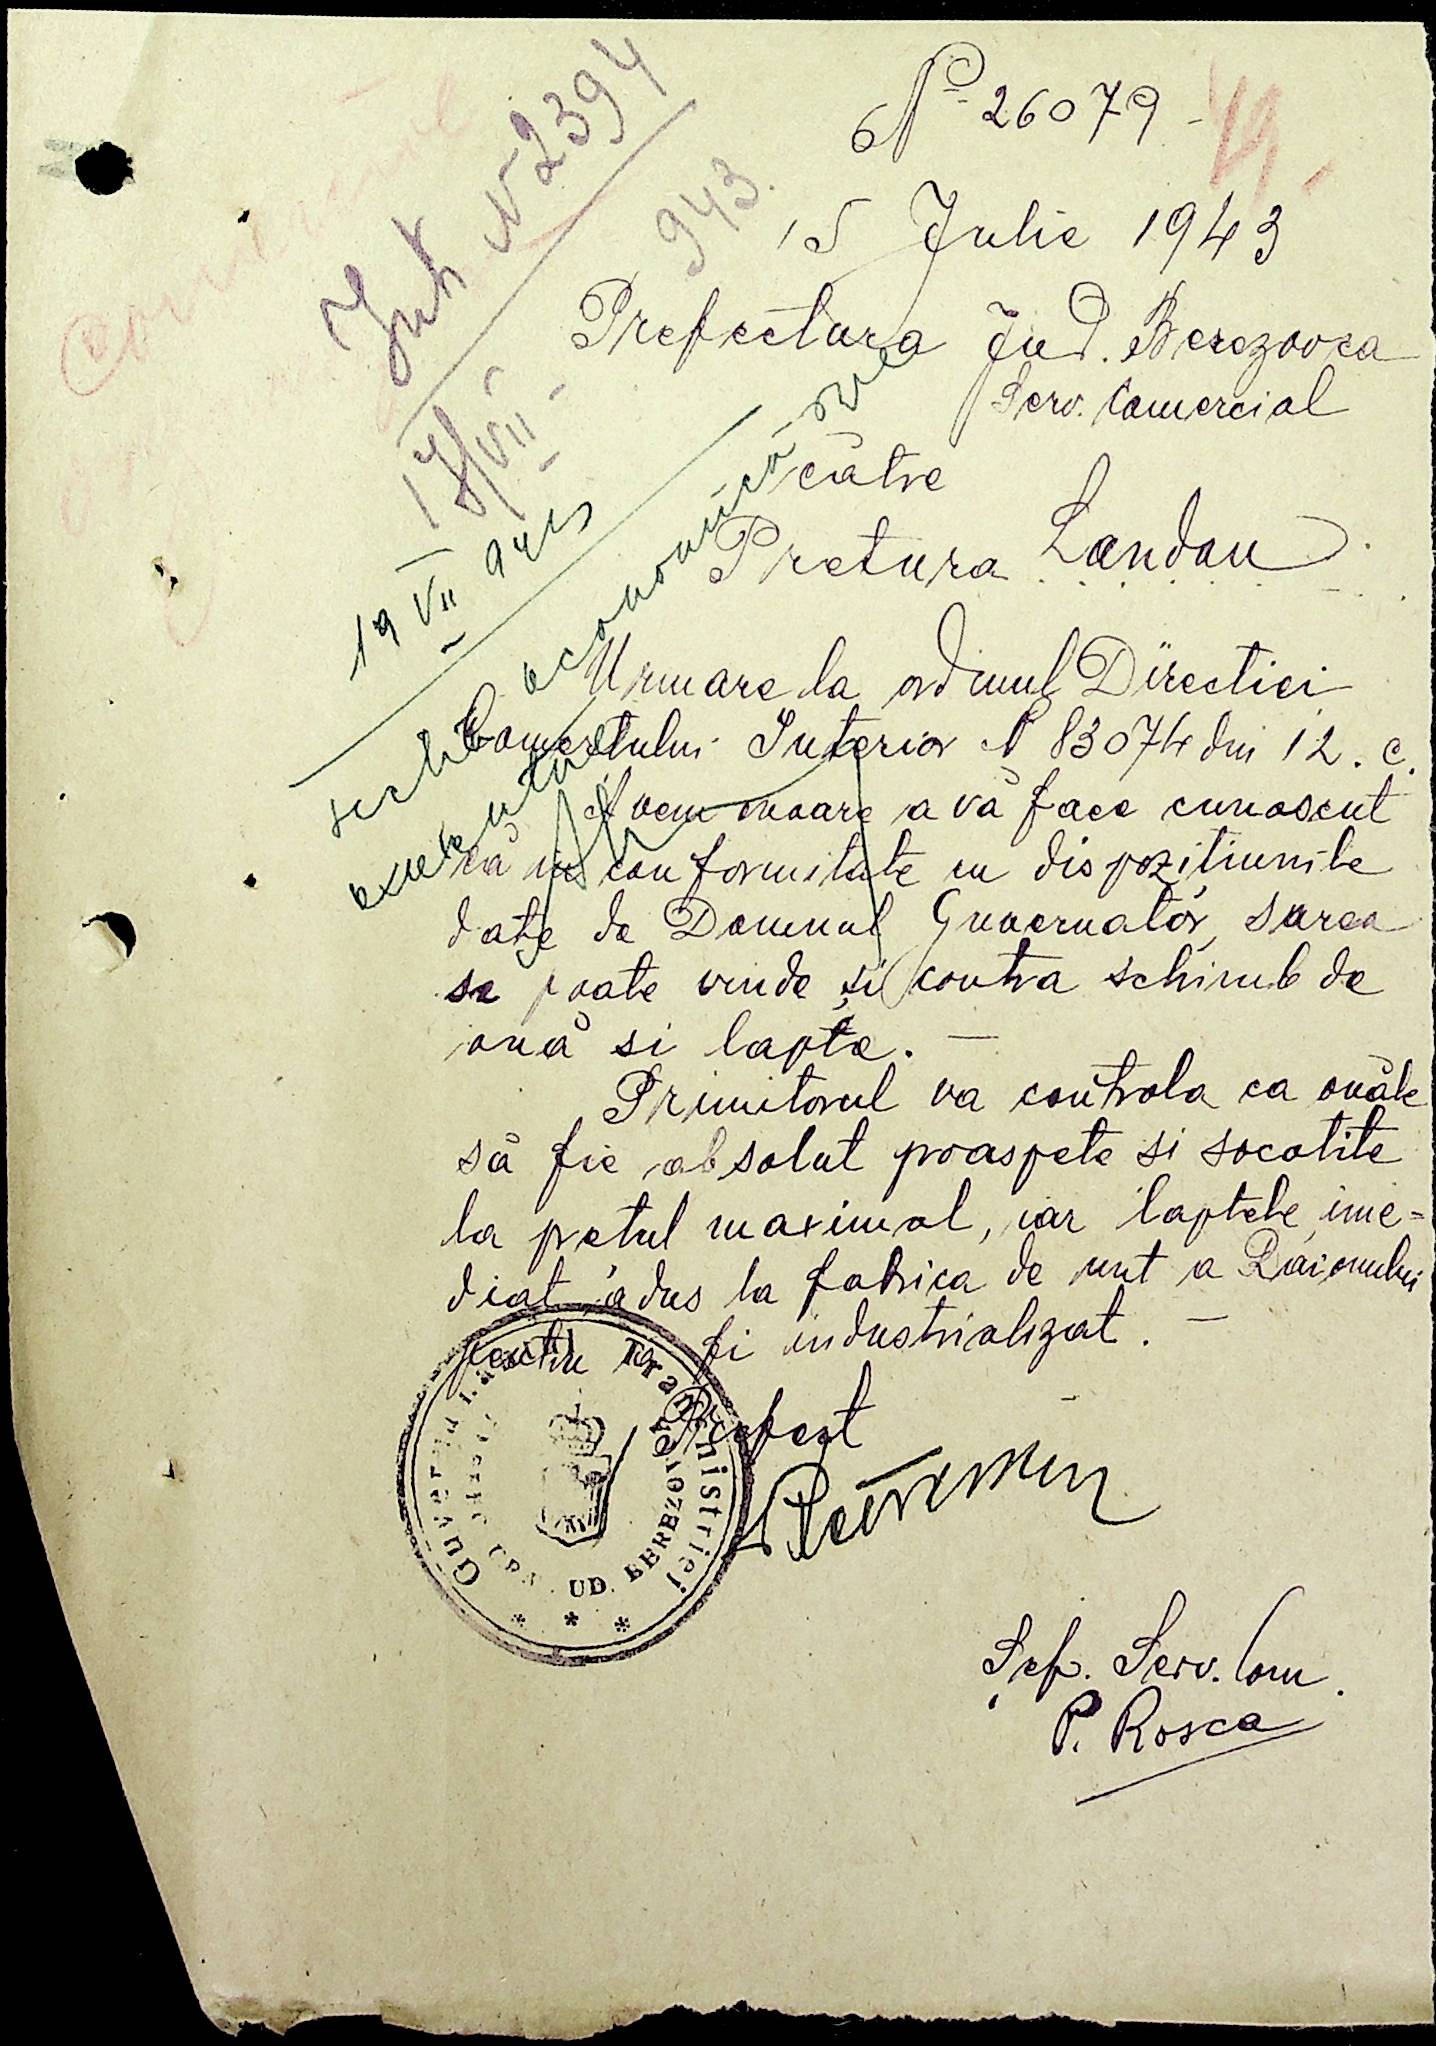 No 26079
49.
15 Julie 1943
Prefectura Jud. Berezovca
Serv. Comercial
cãtre
Pretura Landau
Urmare la ordinul Directiei
Comertului Interior N 83074 din 12. c.
Avem onoare a vã face cunoscut
cã in conformitate cu dispozitiunile
date de Domnul Guvernator, sarea
se poate vinde si contra schimb de
ouã si lapte. —
Primitorul va controla ca ouãle
sã fie absolut proaspete si socotite
la pretul maximal, iar laptele ime=
diat adus la fabrica de unt a Raionului
pentru a fi industrializat. —
Prefect
Sef. Serv. Com.
P. Rosca
Int. N 2394
943.
17/VII
19 VII 943
economicã
executare
Guvernământul Transnistriei
JUD. BEREZOVCA
* * *